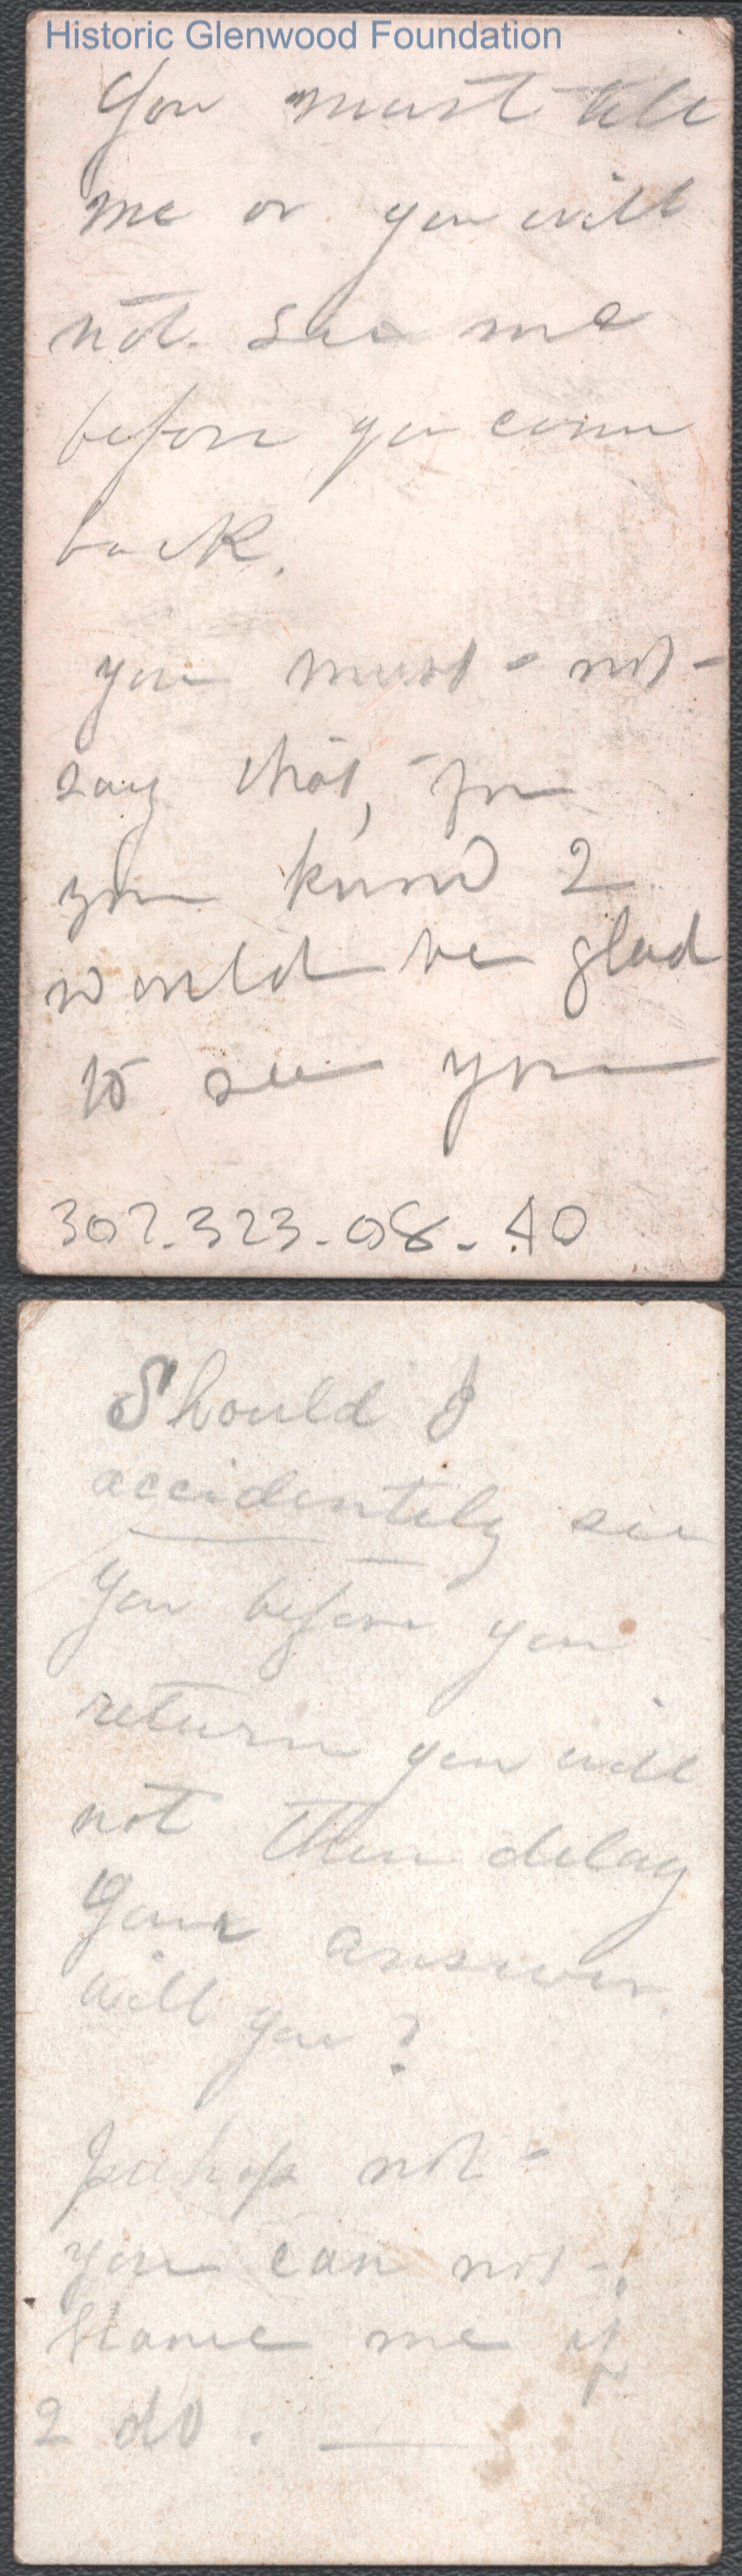 Historic Glenwood Foundation
You must tell
me or you will
not see me
before you come
back.
you must - not -
say that, for
you know I
would be glad
to see you
302.323.08.40
Should I
accidentily see
you before you
return you will
not then delay
your answer
will you?
perhaps not -
you can not -
blame me if
I do.